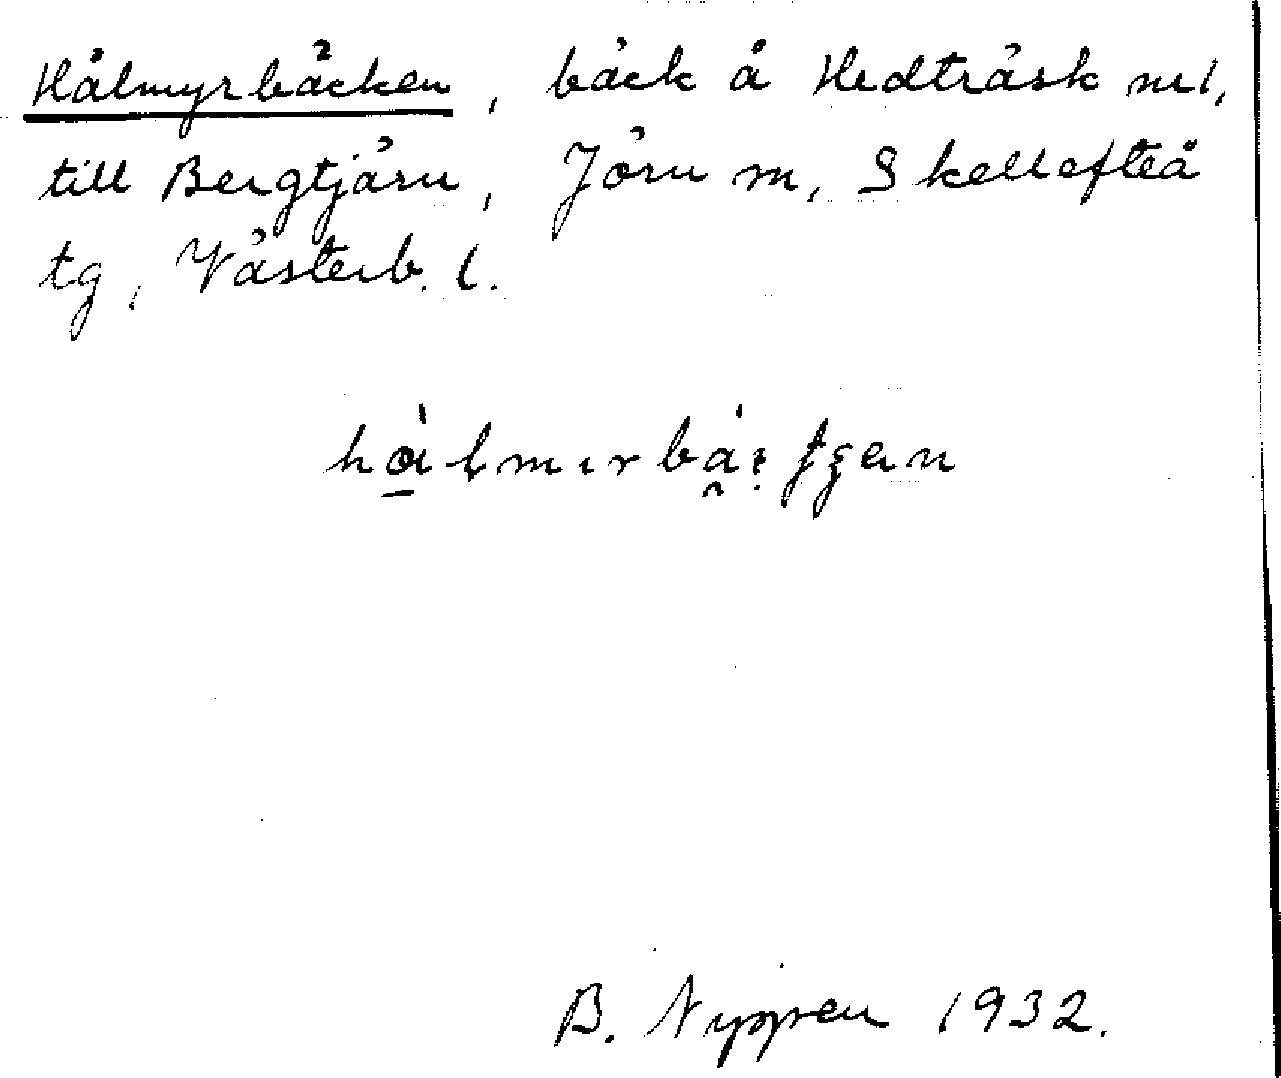 Hålmyrbäcken, bäck å Hedträsk n:r 1,
till Bergtjärn, Jörn sn, Skellefteå
tg, Västerb. l.
B. Nyppen 1932.